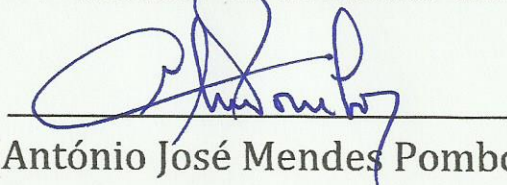 António José Mendes Pombo